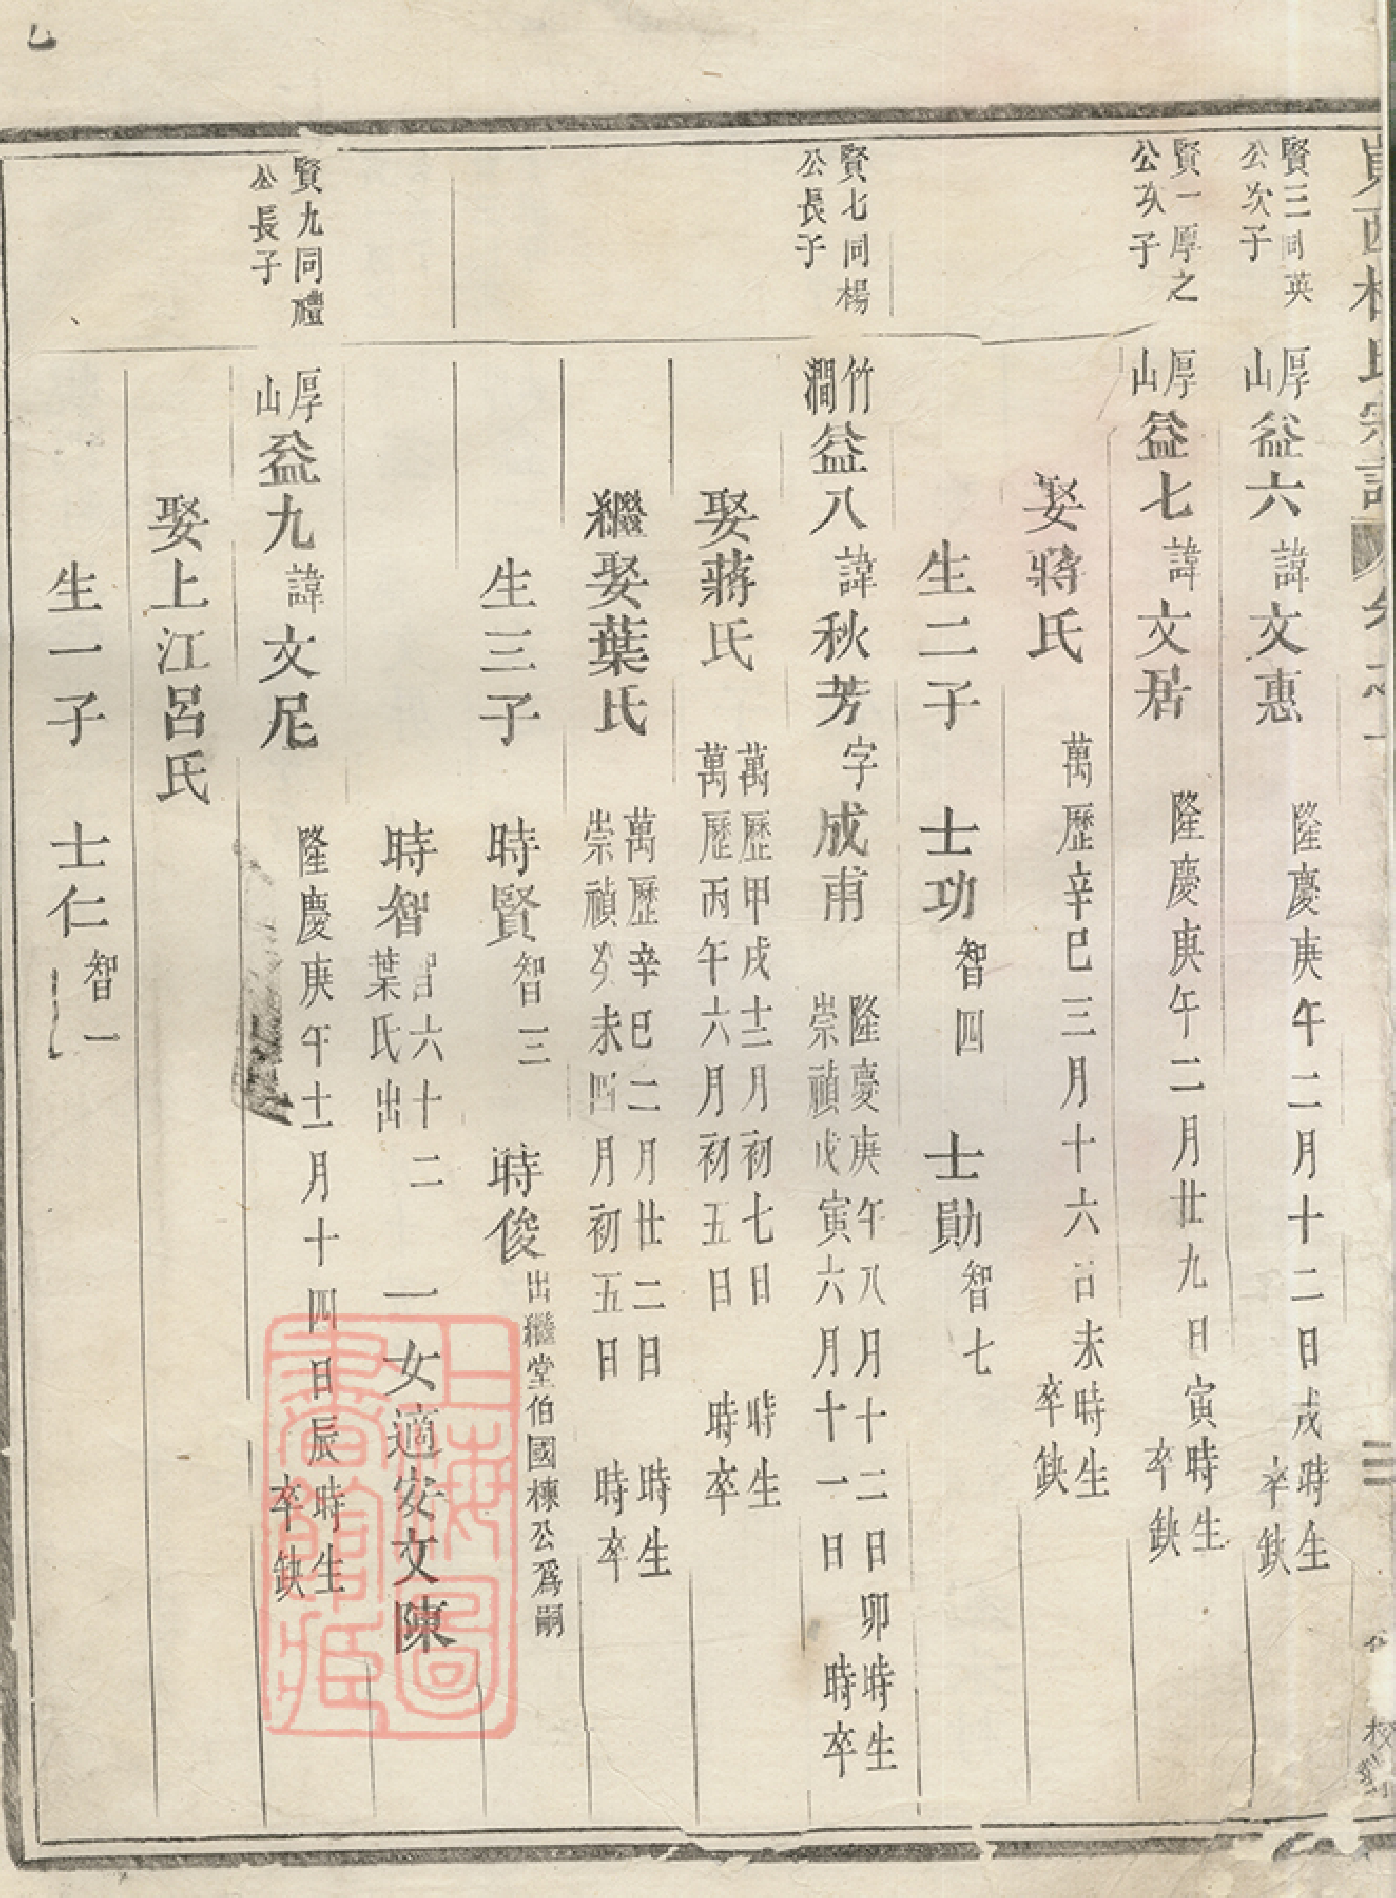 賢三同英
公次子
厚山益六諱文惠 隆慶庚午二月十二日戌時生
卒缺
賢一厚之
公次子
厚山益七諱文居 隆慶庚午二月廿九日寅時生
卒缺
娶蔣氏 萬歷辛巳三月十六日未時生
卒缺
生二子 士功智四 士勛智七
賢七同楊
公長子
竹澗益八諱秋芳字成甫 隆慶庚午八月十二日卯時生
崇禎戊寅六月十一日 時卒
娶蔣氏 萬歷甲戌十二月初七日 時生
萬歷丙午六月初五日 時卒
繼娶葉氏 萬歷辛巳二月廿二日 時生
崇禎癸未四月初五日 時卒
生三子 時賢智三 時俊出繼堂伯國棟公爲嗣
時智智六十二
葉氏出 一女適安文陳
賢九同禮
公長子
厚山益九諱文尼 隆慶庚午十二月十四日辰時生
卒缺
娶上江呂氏
生一子 士仁智一
上海圖書館藏